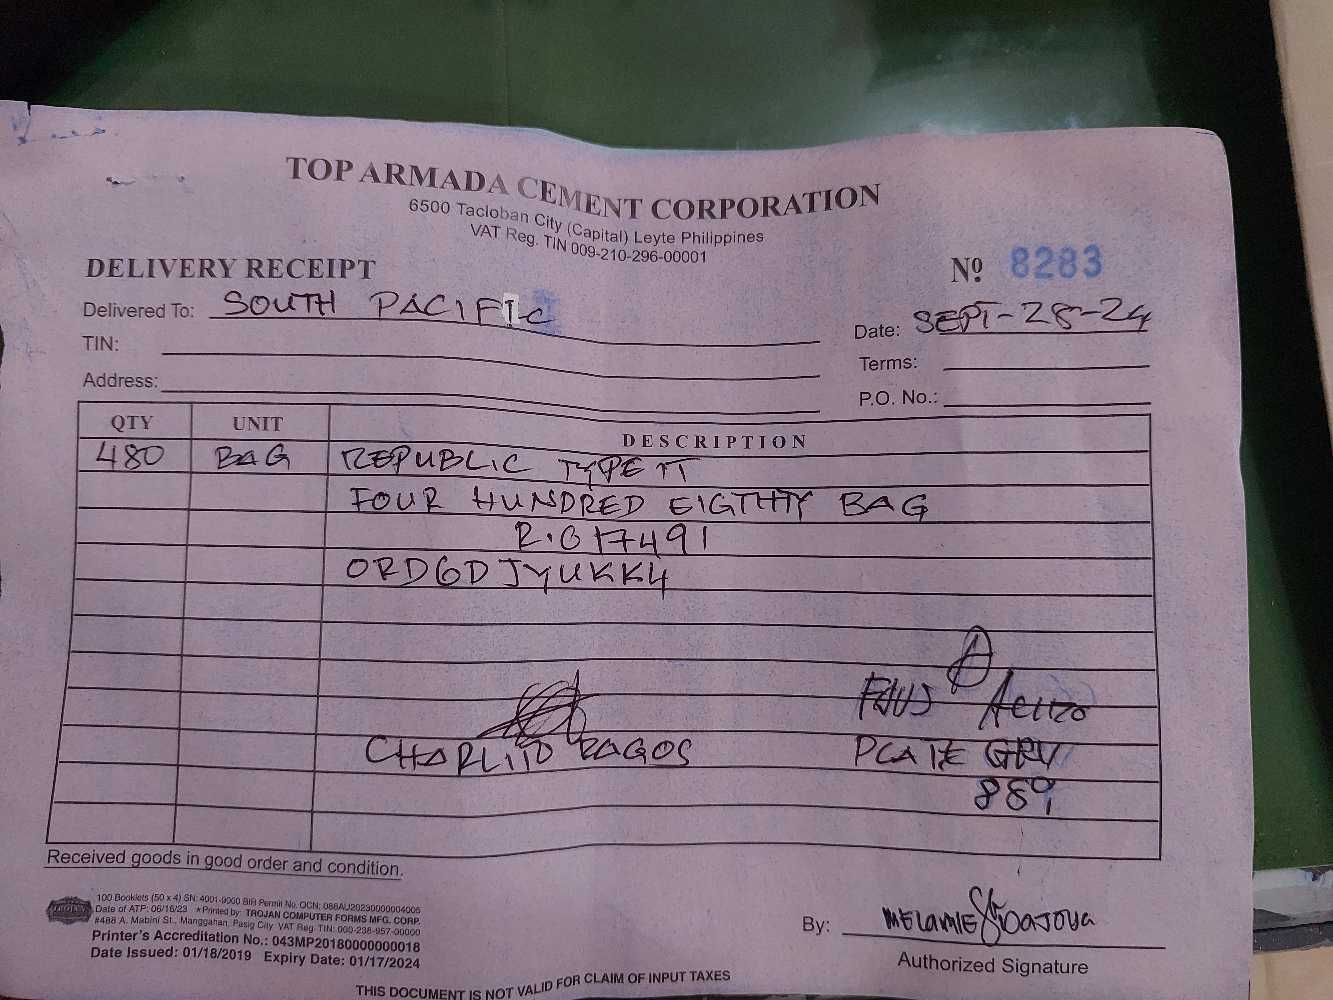 TOP ARMADA CEMENT CORPORATION
6500 Tacloban City (Capital) Leyte Philippines
VAT Reg. TIN 009-210-296-00001
DELIVERY RECEIPT
Nº 8283
Delivered To: SOUTH PACIFIC
Date: SEPT-28-24
TIN:
Terms:
Address:
P.O. No.:
QTY UNIT DESCRIPTION
480 BAG REPUBLIC TYPE 1T
FOUR HUNDRED EIGTHTY BAG
R.O 17491
ORD6DJYUKK4
CHARLITO RAGOS
PLATE GRV
889
Received goods in good order and condition.
100 Booklets (50 x 4) SN: 4001-9000 BIR Permit No. OCN: 088AU20230000004006
Date of ATP: 06/16/23 * Printed by: TROJAN COMPUTER FORMS MFG. CORP.
#488 A. Mabini St., Manggahan, Pasig City VAT Reg. TIN: 000-238-957-00000
Printer's Accreditation No.: 043MP20180000000018
Date Issued: 01/18/2019 Expiry Date: 01/17/2024
By: MELANIE
Authorized Signature
THIS DOCUMENT IS NOT VALID FOR CLAIM OF INPUT TAXES